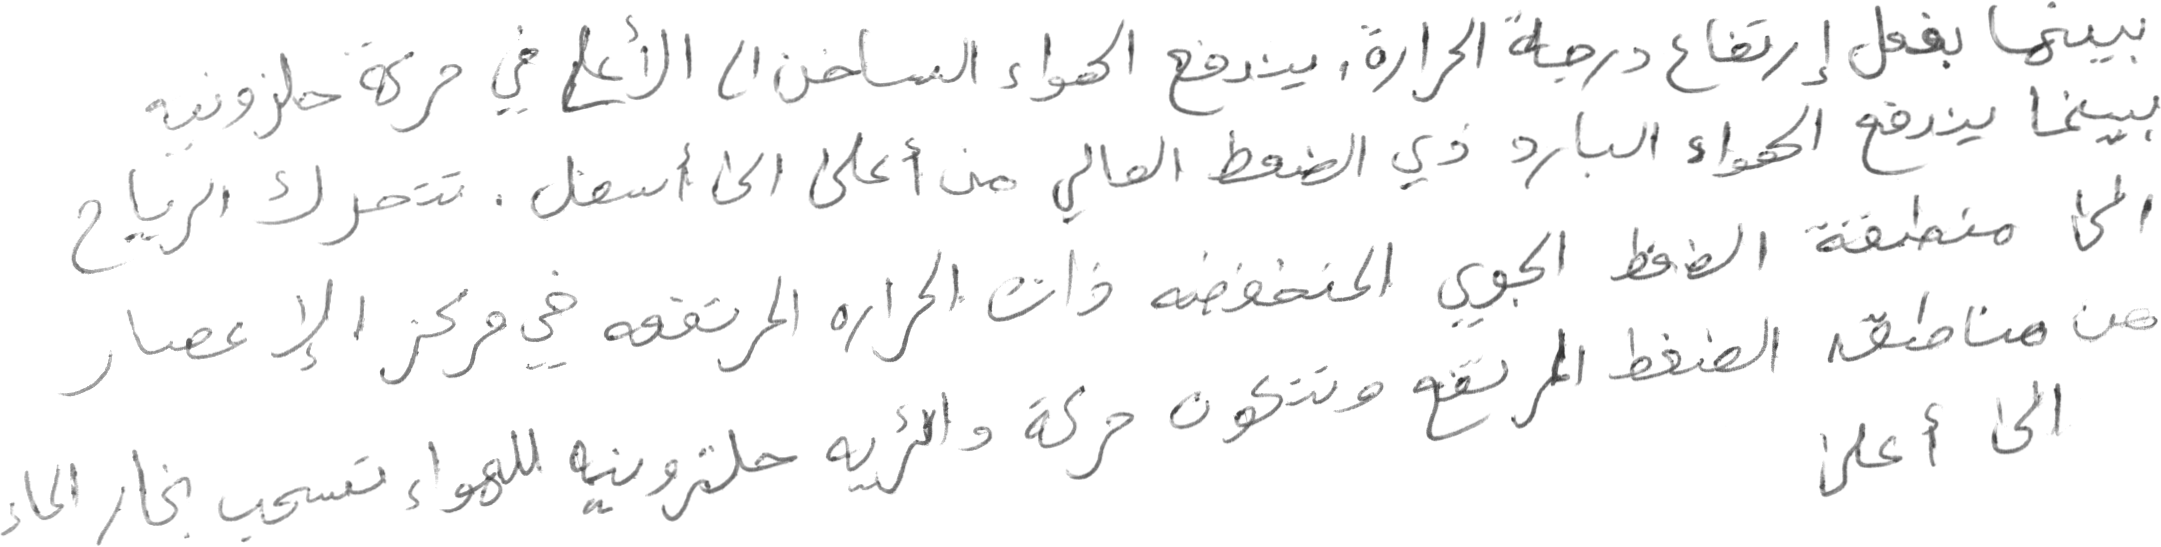 بينما بفعل إرتفاع درجة الحرارة، يندفع الهواء الساخن الى الأعلى في حركة حلزونيه
بينما يندفع الهواء البارد ذي الضغط العالي من أعلى الى أسفل . تتحرك الرياح
الى منطقة الضغط الجوي المنخفضه ذات الحراره المرتفعه في مركز الإعصار
من مناطق الضغط المرتفع وتتكون حركة دائريه حلزونيه للهواء تسحب بخار الماء
الى أعلى